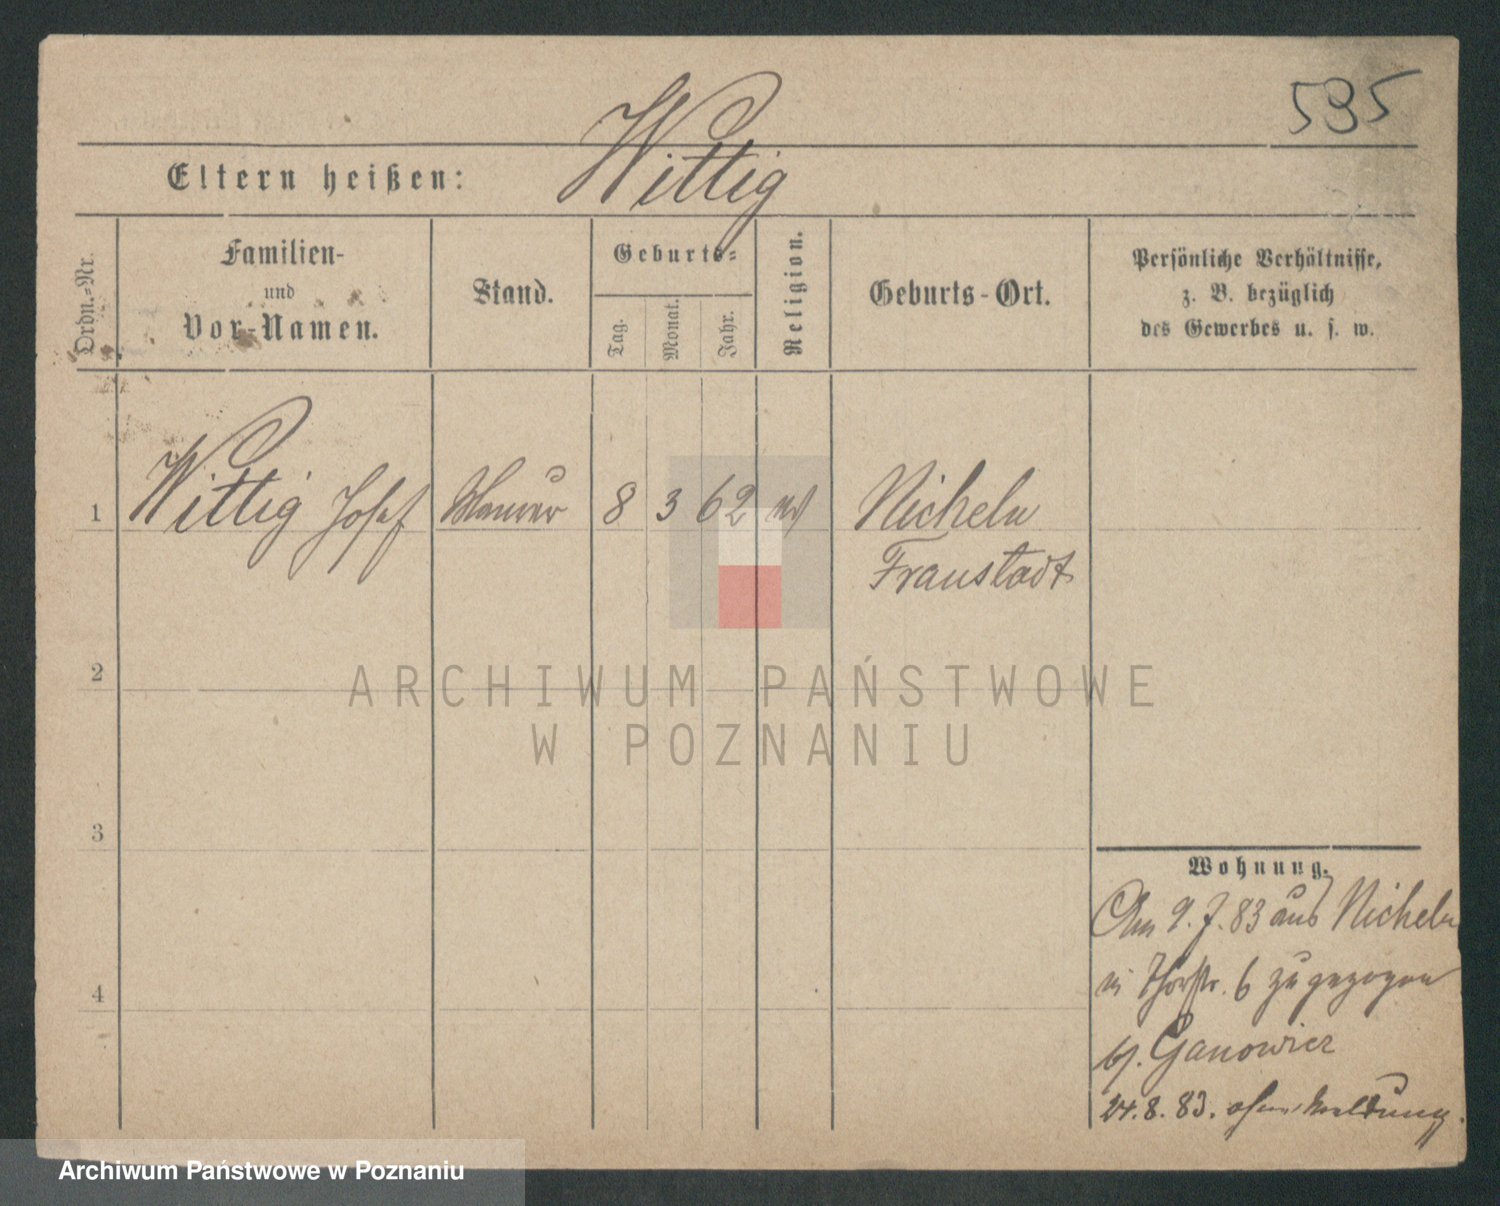 595
Wittig
Eltern heißen:
Ordn.-Nr.
Familien-
und
Vor-Namen.
Stand.
Geburts-
Tag.
Monat.
Jahr.
Religion.
Geburts-Ort.
Persönliche Verhältnisse,
z. B. bezüglich
des Gewerbes u. s. w.
1 Wittig Josef Maurer 8 3 62 Nicheln
Fraustadt
2
3
4
Wohnung.
Am 9. 7. 83 aus Nicheln
in Thorstr. 6 zugezogen
bei Ganowicz
24. 8. 83. ohne Meldung.
ARCHIWUM PAŃSTWOWE
W POZNANIU
Archiwum Państwowe w Poznaniu